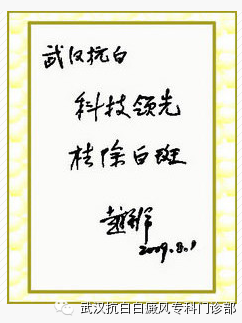 武汉抗白
科技领先
祛除白斑
2009.8.1
武汉抗白白癜风专科门诊部